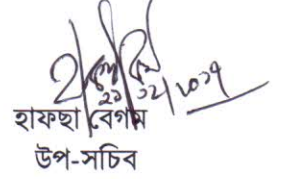 ২১/১২/২০১৭
হাফছা বেগম
উপ-সচিব